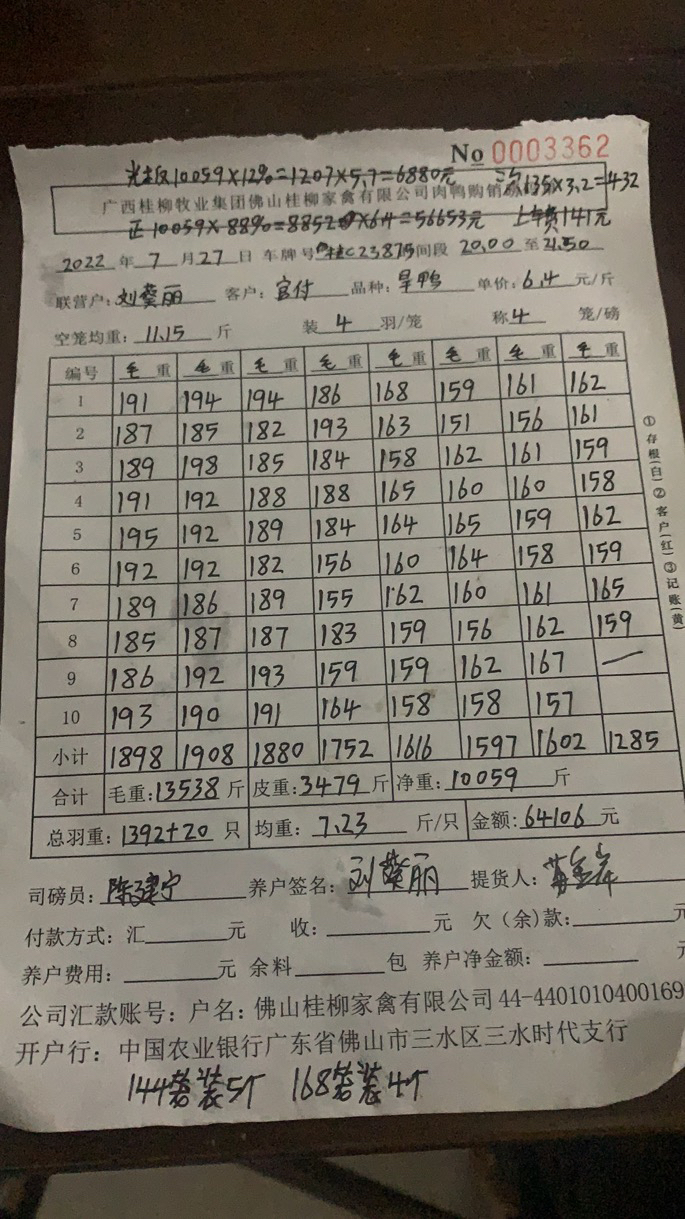 No 0003362
光板10059×12%=1207×5.7=6880元 135×3.2=432
广西桂柳牧业集团佛山桂柳家禽有限公司肉鸭购销
正10059×88%=8852×6.4=56653元 上车费141元
2022年7月27日 车牌号 桂C23875 时间段 20.00至21.50
联营户:刘葵丽 客户:宫付 品种:旱鸭 单价:6.4元/斤
空笼均重:11.15斤 装4羽/笼 称4笼/磅
编号 毛重 毛重 毛重 毛重 毛重 毛重 毛重 毛重
1 191 194 194 186 168 159 161 162
2 187 185 182 193 163 151 156 161
3 189 198 185 184 158 162 161 159
4 191 192 188 188 165 160 160 158
5 195 192 189 184 164 165 159 162
6 192 192 182 156 160 164 158 159
7 189 186 189 155 162 160 161 165
8 185 187 187 183 159 156 162 159
9 186 192 193 159 159 162 167 —
10 193 190 191 164 158 158 157
小计 1898 1908 1880 1752 1616 1597 1602 1285
合计 毛重:13538斤 皮重:3479斤 净重:10059斤
总羽重:1392+20只 均重:7.23斤/只 金额:64106元
司磅员:陈建宁 养户签名:刘葵丽 提货人:
付款方式:汇 元 收: 元 欠(余)款: 元
养户费用: 元 余料 包 养户净金额: 元
公司汇款账号:户名:佛山桂柳家禽有限公司 44-4401010400169
开户行:中国农业银行广东省佛山市三水区三水时代支行
144笼装5个 168笼装4个
①存根(白)②客户(红)③记账(黄)